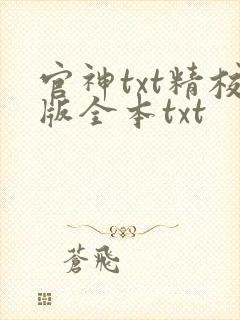 官神txt精校
版全本txt
蒼飛